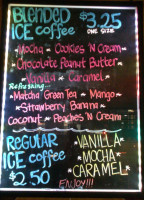 Blended $3.25
ICE coffee ONE SIZE
Mocha - Cookies 'N Cream
Chocolate Peanut Butter
Vanilla - Caramel
Refreshing...
Matcha Green Tea - Mango
Strawberry Banana
Coconut - Peaches 'N Cream
REGULAR VANILLA
ICE coffee MOCHA
$2.50 CARAMEL
ENJOY!!!